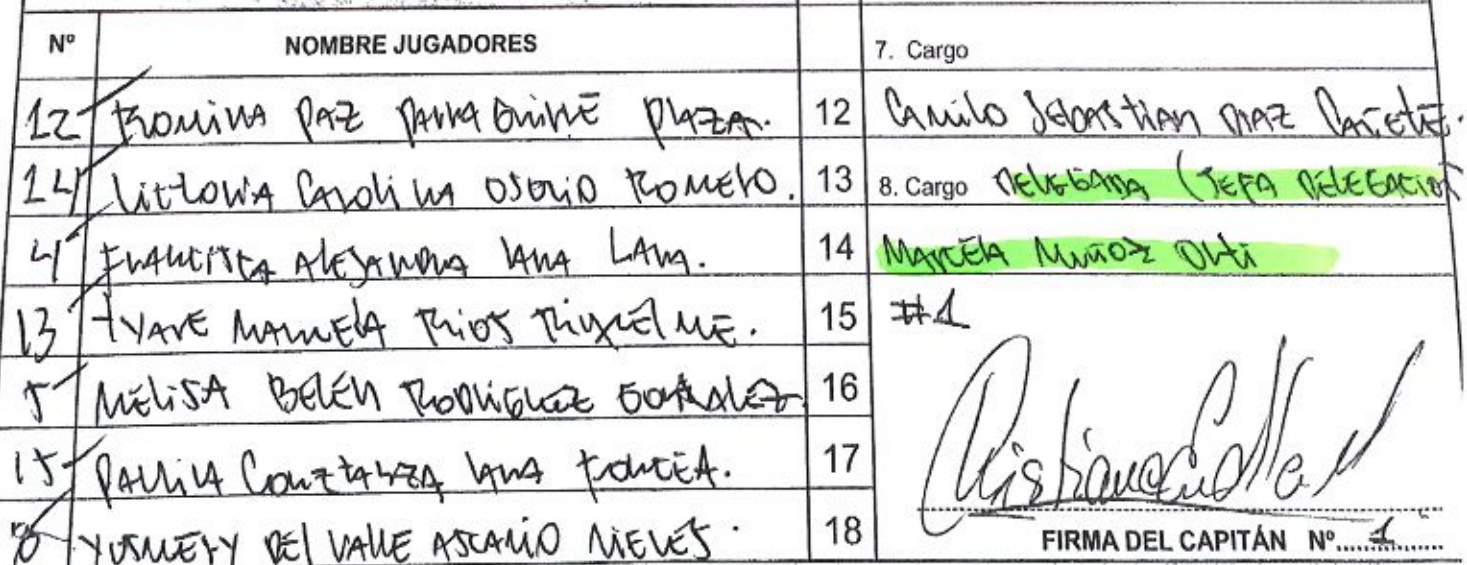 Nº NOMBRE JUGADORES 7. Cargo
12 Romina Paz Plaza. 12 Camilo Sebastian Diaz Cañete.
14 Victoria Carolina Osorio Romero. 13 8. Cargo Delegada (Jefa Delegacion
4 Francisca Alejandra Lara Lara. 14 Marcela Muñoz Orti
13 Tyare Manuela Rios Riquelme. 15 #1
5 Melisa Belén Rodriguez Gonzalez 16
15 Paulina Constanza Lara Fonsea. 17
8 Yusmery del Valle Ascanio Nieves. 18
FIRMA DEL CAPITÁN Nº 1